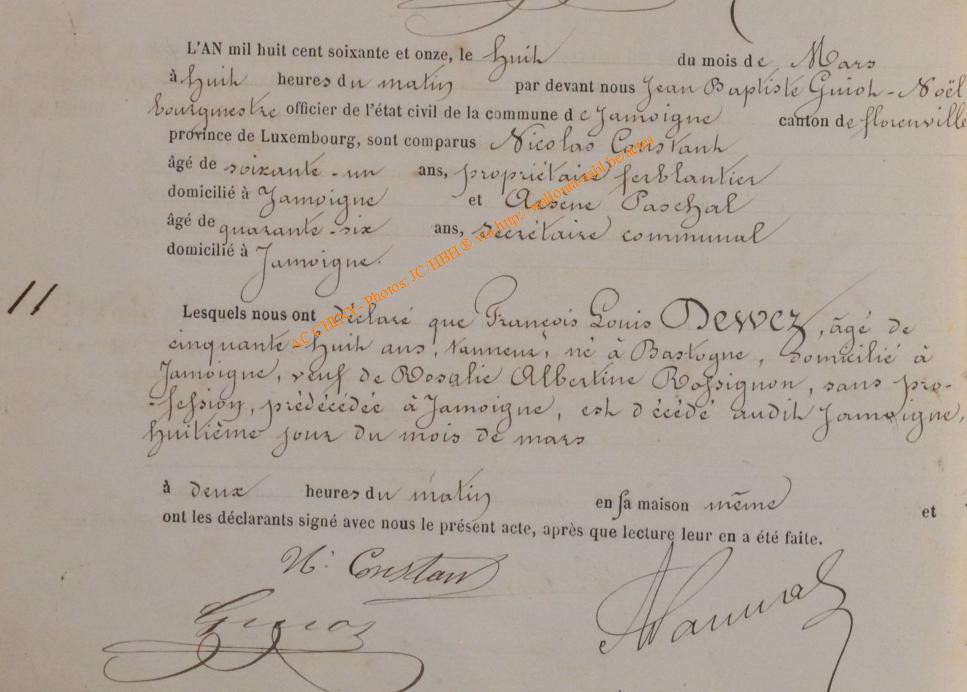 L'AN mil huit cent soixante et onze, le huit du mois de Mars
à huit heures du matin par devant nous Jean Baptiste Guiot-Noël
bourgmestre officier de l'état civil de la commune de Jamoigne canton de florenville
province de Luxembourg, sont comparus Nicolas Constant
âgé de soixante-un ans, propriétaire ferblantier
domicilié à Jamoigne et Arsène Paschal
âgé de quarante-six ans, secrétaire communal
domicilié à Jamoigne.
11
Lesquels nous ont déclaré que François Louis Dewez, âgé de
cinquante-huit ans, vanneur, né à Bastogne, domicilié à
Jamoigne, veuf de Rosalie Albertine Rossignon, sans pro-
-fession, prédécédée à Jamoigne, est décédé audit Jamoigne,
huitième jour du mois de mars
à deux heures du matin en sa maison même et
ont les déclarants signé avec nous le présent acte, après que lecture leur en a été faite.
N. Constant
AC CHINY - Photos: JC/HBH ® via http://wallonia-mhl.be/actes